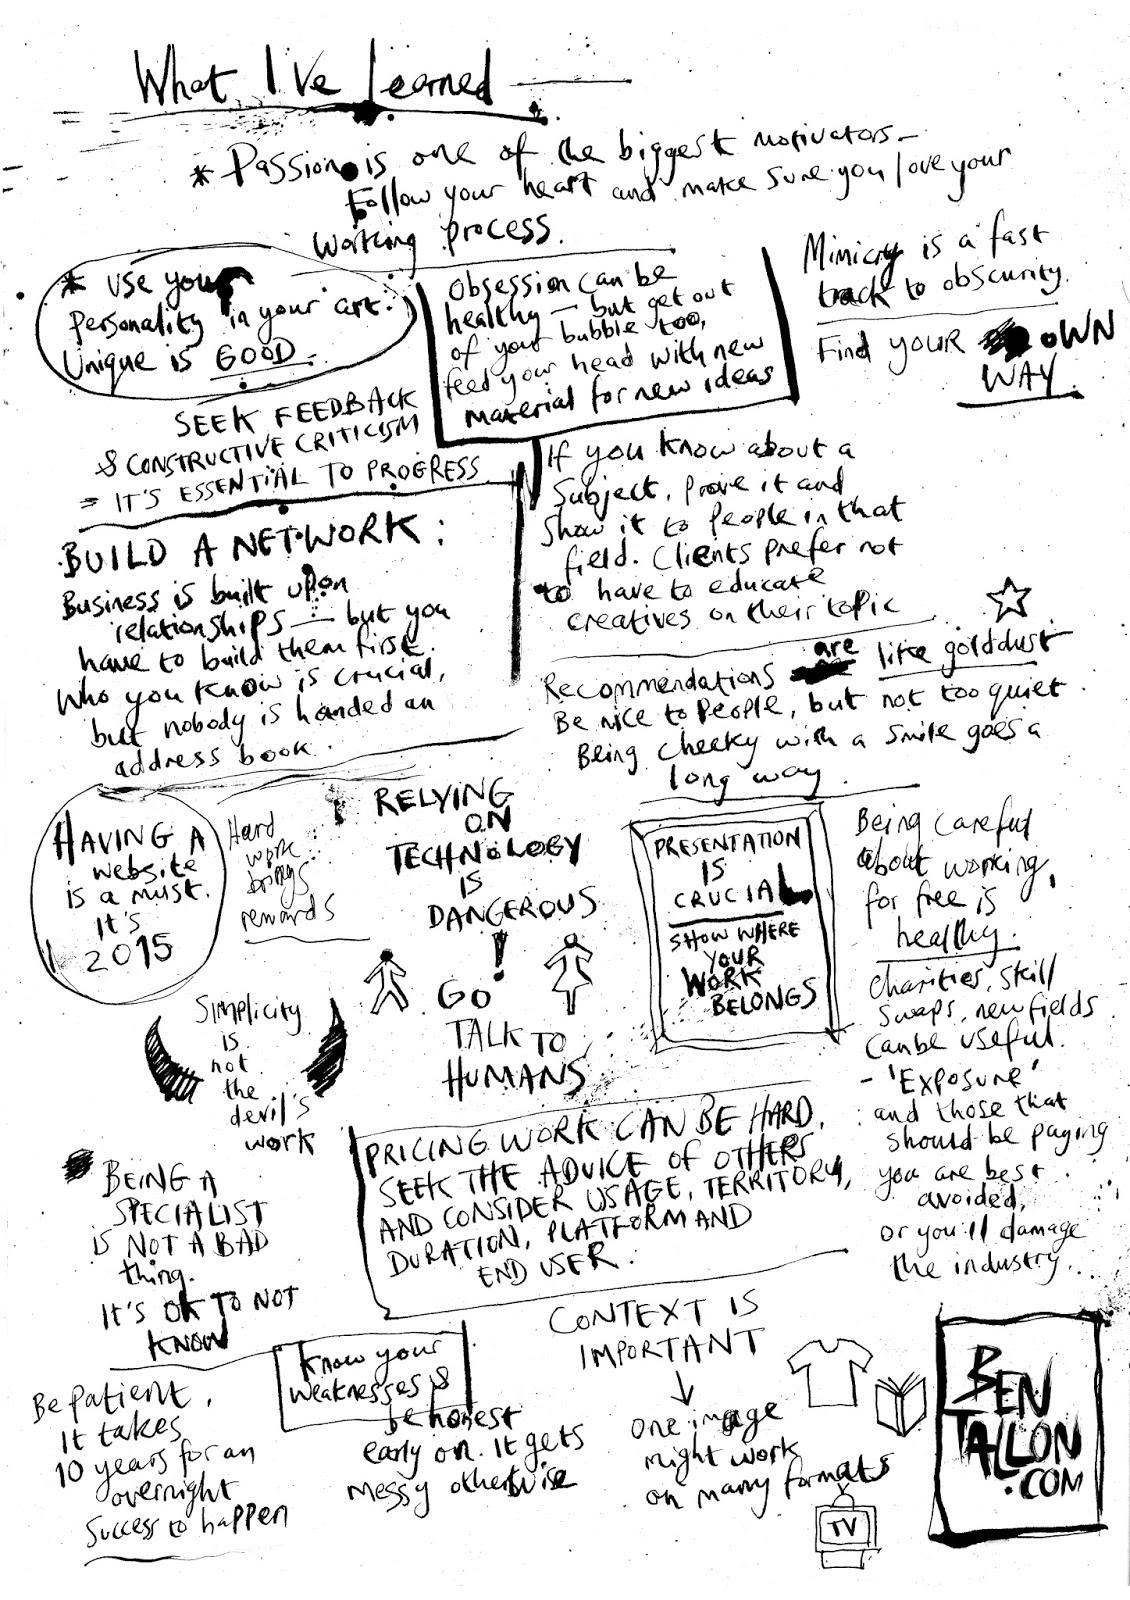 What I've learned
* Passion is one of the biggest motivators -
Follow your heart and make sure you love your
working process.
* Use your
personality in your art.
Unique is GOOD.
Obsession can be
healthy - but get out
of your bubble too,
feed your head with new
material for new ideas
Mimicry is a fast
track to obscurity.
Find YOUR OWN
WAY.
SEEK FEEDBACK
& CONSTRUCTIVE CRITICISM
= IT'S ESSENTIAL TO PROGRESS
BUILD A NETWORK:
Business is built upon
relationships - but you
have to build them first.
Who you know is crucial,
but nobody is handed an
address book.
If you know about a
subject, prove it and
show it to people in that
field. Clients prefer not
to have to educate
creatives on their topic
Recommendations are like golddust
Be nice to people, but not too quiet.
Being cheeky with a smile goes a
long way.
HAVING A
website
is a must.
It's
2015
Hard
work
brings
rewards
RELYING
ON
TECHNOLOGY
IS
DANGEROUS
!
GO
TALK TO
HUMANS
PRESENTATION
IS
CRUCIAL
SHOW WHERE
YOUR
WORK
BELONGS
Being careful
about working,
for free is
healthy.
Charities, skill
swaps, new fields
can be useful.
- 'EXPOSURE'
and those that
should be paying
you are best
avoided,
or you'll damage
the industry.
Simplicity
is
not
the
devil's
work
BEING A
SPECIALIST
IS NOT A BAD
thing.
It's OK TO NOT
KNOW
PRICING WORK CAN BE HARD.
SEEK THE ADVICE OF OTHERS
AND CONSIDER USAGE, TERRITORY,
DURATION, PLATFORM AND
END USER.
Be patient.
It takes
10 years for an
overnight
success to happen
Know your
weaknesses &
be honest
early on. It gets
messy otherwise
CONTEXT IS
IMPORTANT
one image
might work
on many formats
TV
BEN
TALLON
.COM